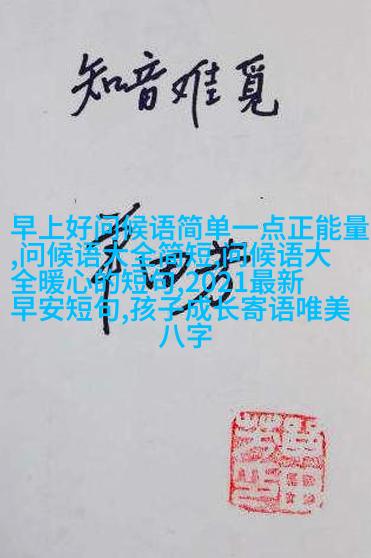 知音难觅
早上好问候语简单一点正能量
,问候语大全简短,问候语大
全暖心的短句,2021最新
早安短句,孩子成长寄语唯美
八字
单田芳